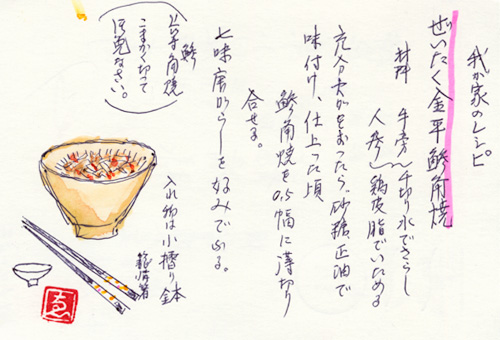 我が家のレシピ
ぜいたく金平鯵角焼
材料 牛旁 千切り水でさらし
人参 鶏皮脂でいためる
充分火がまわったら、砂糖正油で
味付け、仕上った頃
鯵角焼を0.5幅に薄切り
合せる。
七味唐がらしを好みでふる。
鯵
角焼
こまかくて
ご免なさい。
入れ物は小擂り鉢
箸
ゑ